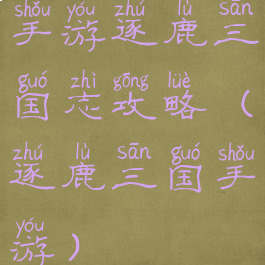 shǒu yóu zhú lù sān
手游逐鹿三
guó zhì gōng lüè
国志攻略（
zhú lù sān guó shǒu
逐鹿三国手
yóu
游）